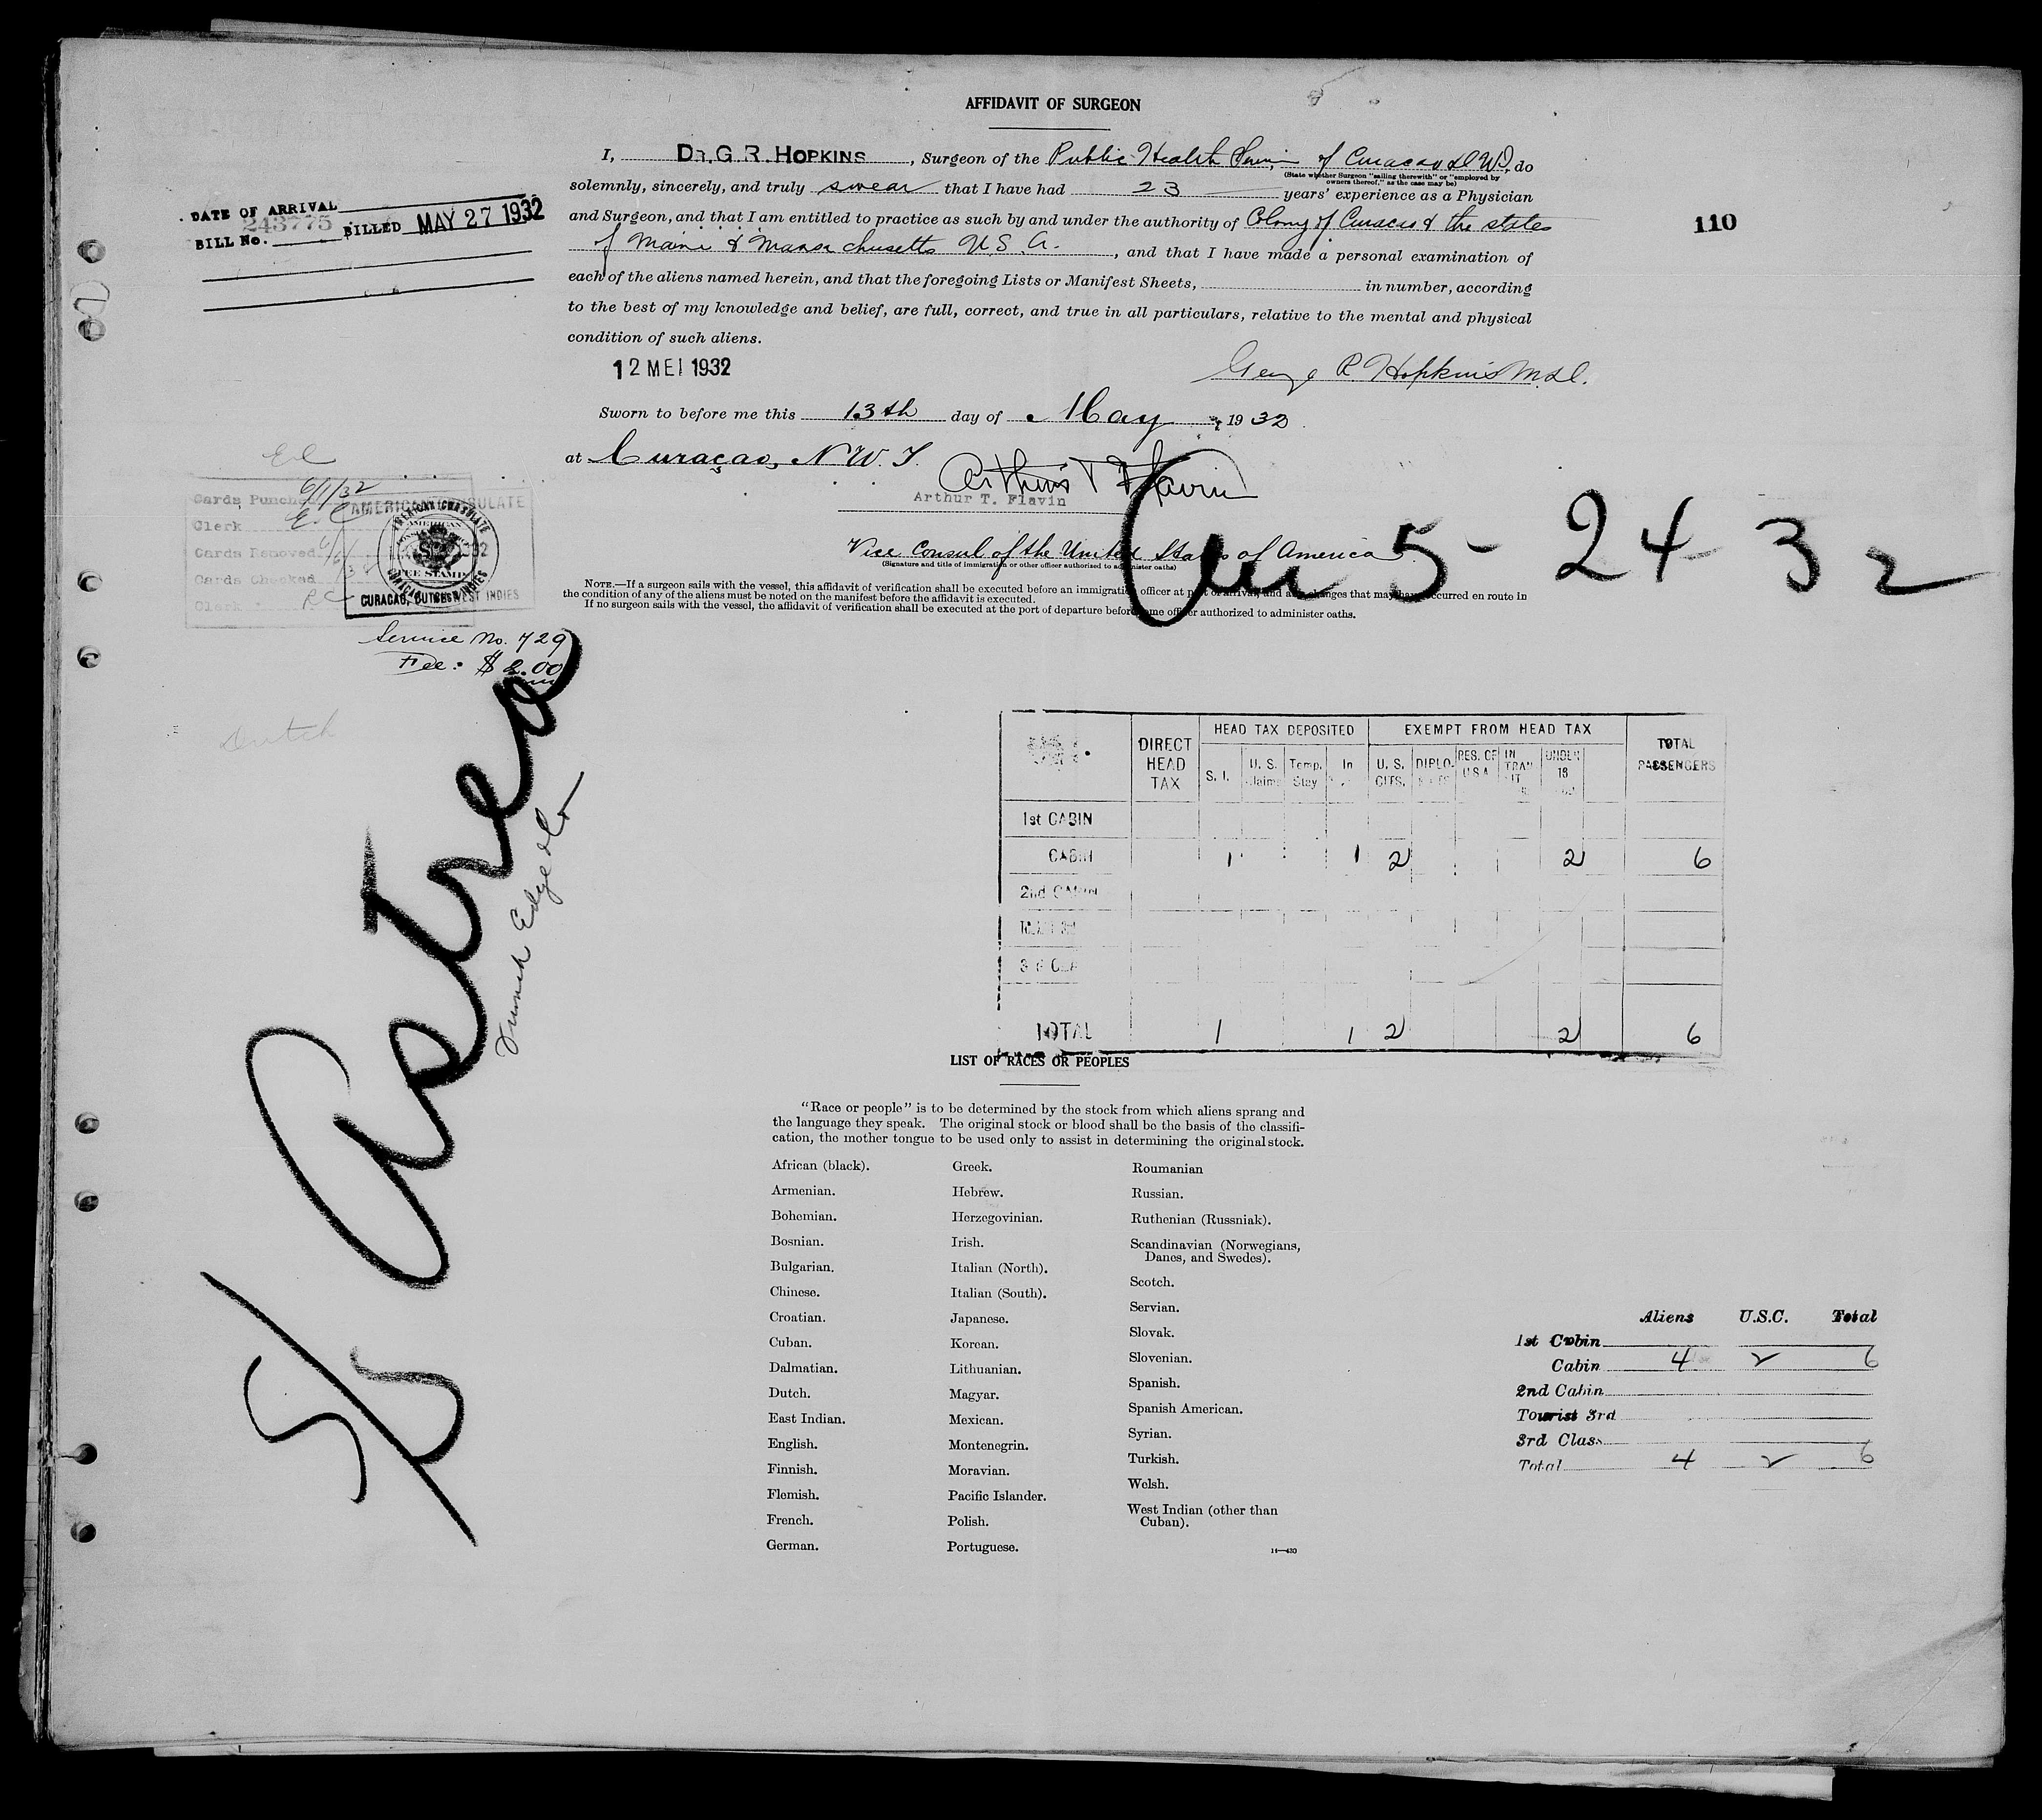 AFFIDAVIT OF SURGEON
I, DR. G. R. HOPKINS, Surgeon of the Public Health of Curacao D.W.I, do
(State whether Surgeon "sailing therewith" or "employed by
owners thereof," as the case may be)
solemnly, sincerely, and truly swear that I have had 23 years' experience as a Physician
and Surgeon, and that I am entitled to practice as such by and under the authority of Colony of Curacao & the states
of Maine & Massachusetts U. S. A., and that I have made a personal examination of
each of the aliens named herein, and that the foregoing Lists or Manifest Sheets, in number, according
to the best of my knowledge and belief, are full, correct, and true in all particulars, relative to the mental and physical
condition of such aliens.
DATE OF ARRIVAL
243775
BILL No. BILLED MAY 27 1932
110
12 MEI 1932
George R Hopkins M.D.
Sworn to before me this 13th day of May, 1932
at Curaçao, N.W.I.
Arthur T Flavin
Arthur T. Flavin
Vice Consul of the United States of America
(Signature and title of immigration or other officer authorized to administer oaths)
5-24-32
NOTE.—If a surgeon sails with the vessel, this affidavit of verification shall be executed before an immigration officer at port of arrival, and any changes that may have occurred en route in
the condition of any of the aliens must be noted on the manifest before the affidavit is executed.
If no surgeon sails with the vessel, the affidavit of verification shall be executed at the port of departure before some officer authorized to administer oaths.
Cards Punched 6/1/32
Clerk E.C
Cards Removed
Cards Checked
Clerk RC
AMERICAN CONSULATE
AMERICAN
FEE STAMP
CURACAO, DUTCH WEST INDIES
Service No. 729
Fee: $2.00
Dutch
S/S Astrea
DIRECT HEAD TAX
HEAD TAX DEPOSITED
EXEMPT FROM HEAD TAX
TOTAL PASSENGERS
S. I. U. S. Claims Temp. Stay In U. S. CITS. DIPLO- RES. OF U S A IN TRANSIT UNDER 16
1st CABIN
CABIN 1 1 2 2 6
2nd CABIN
TOTAL 1 1 2 2 6
LIST OF RACES OR PEOPLES
"Race or people" is to be determined by the stock from which aliens sprang and
the language they speak. The original stock or blood shall be the basis of the classifi-
cation, the mother tongue to be used only to assist in determining the original stock.
African (black).
Armenian.
Bohemian.
Bosnian.
Bulgarian.
Chinese.
Croatian.
Cuban.
Dalmatian.
Dutch.
East Indian.
English.
Finnish.
Flemish.
French.
German.
Greek.
Hebrew.
Herzegovinian.
Irish.
Italian (North).
Italian (South).
Japanese.
Korean.
Lithuanian.
Magyar.
Mexican.
Montenegrin.
Moravian.
Pacific Islander.
Polish.
Portuguese.
Roumanian
Russian.
Ruthenian (Russniak).
Scandinavian (Norwegians,
Danes, and Swedes).
Scotch.
Servian.
Slovak.
Slovenian.
Spanish.
Spanish American.
Syrian.
Turkish.
Welsh.
West Indian (other than
Cuban).
14—430
Aliens U.S.C. Total
1st Cabin
Cabin 4 2 6
2nd Cabin
Tourist 3rd
3rd Class
Total 4 2 6